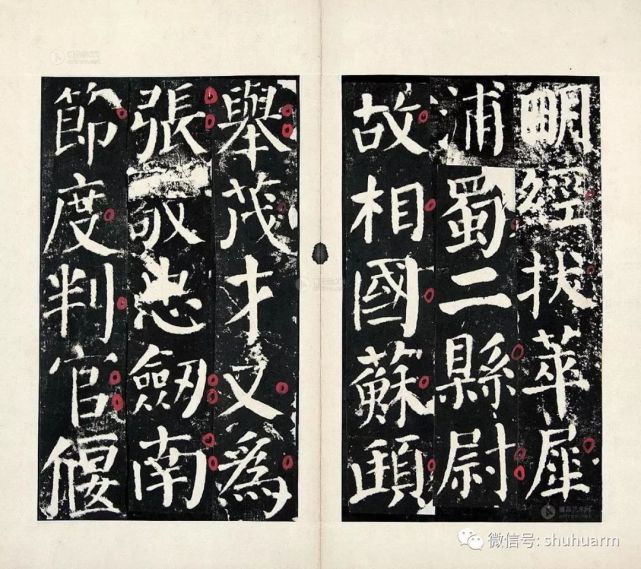 明經拔萃犀
浦蜀二縣尉
故相國蘇頲
舉茂才又為
張敬忠劒南
節度判官偃
微信号: shuhuarm